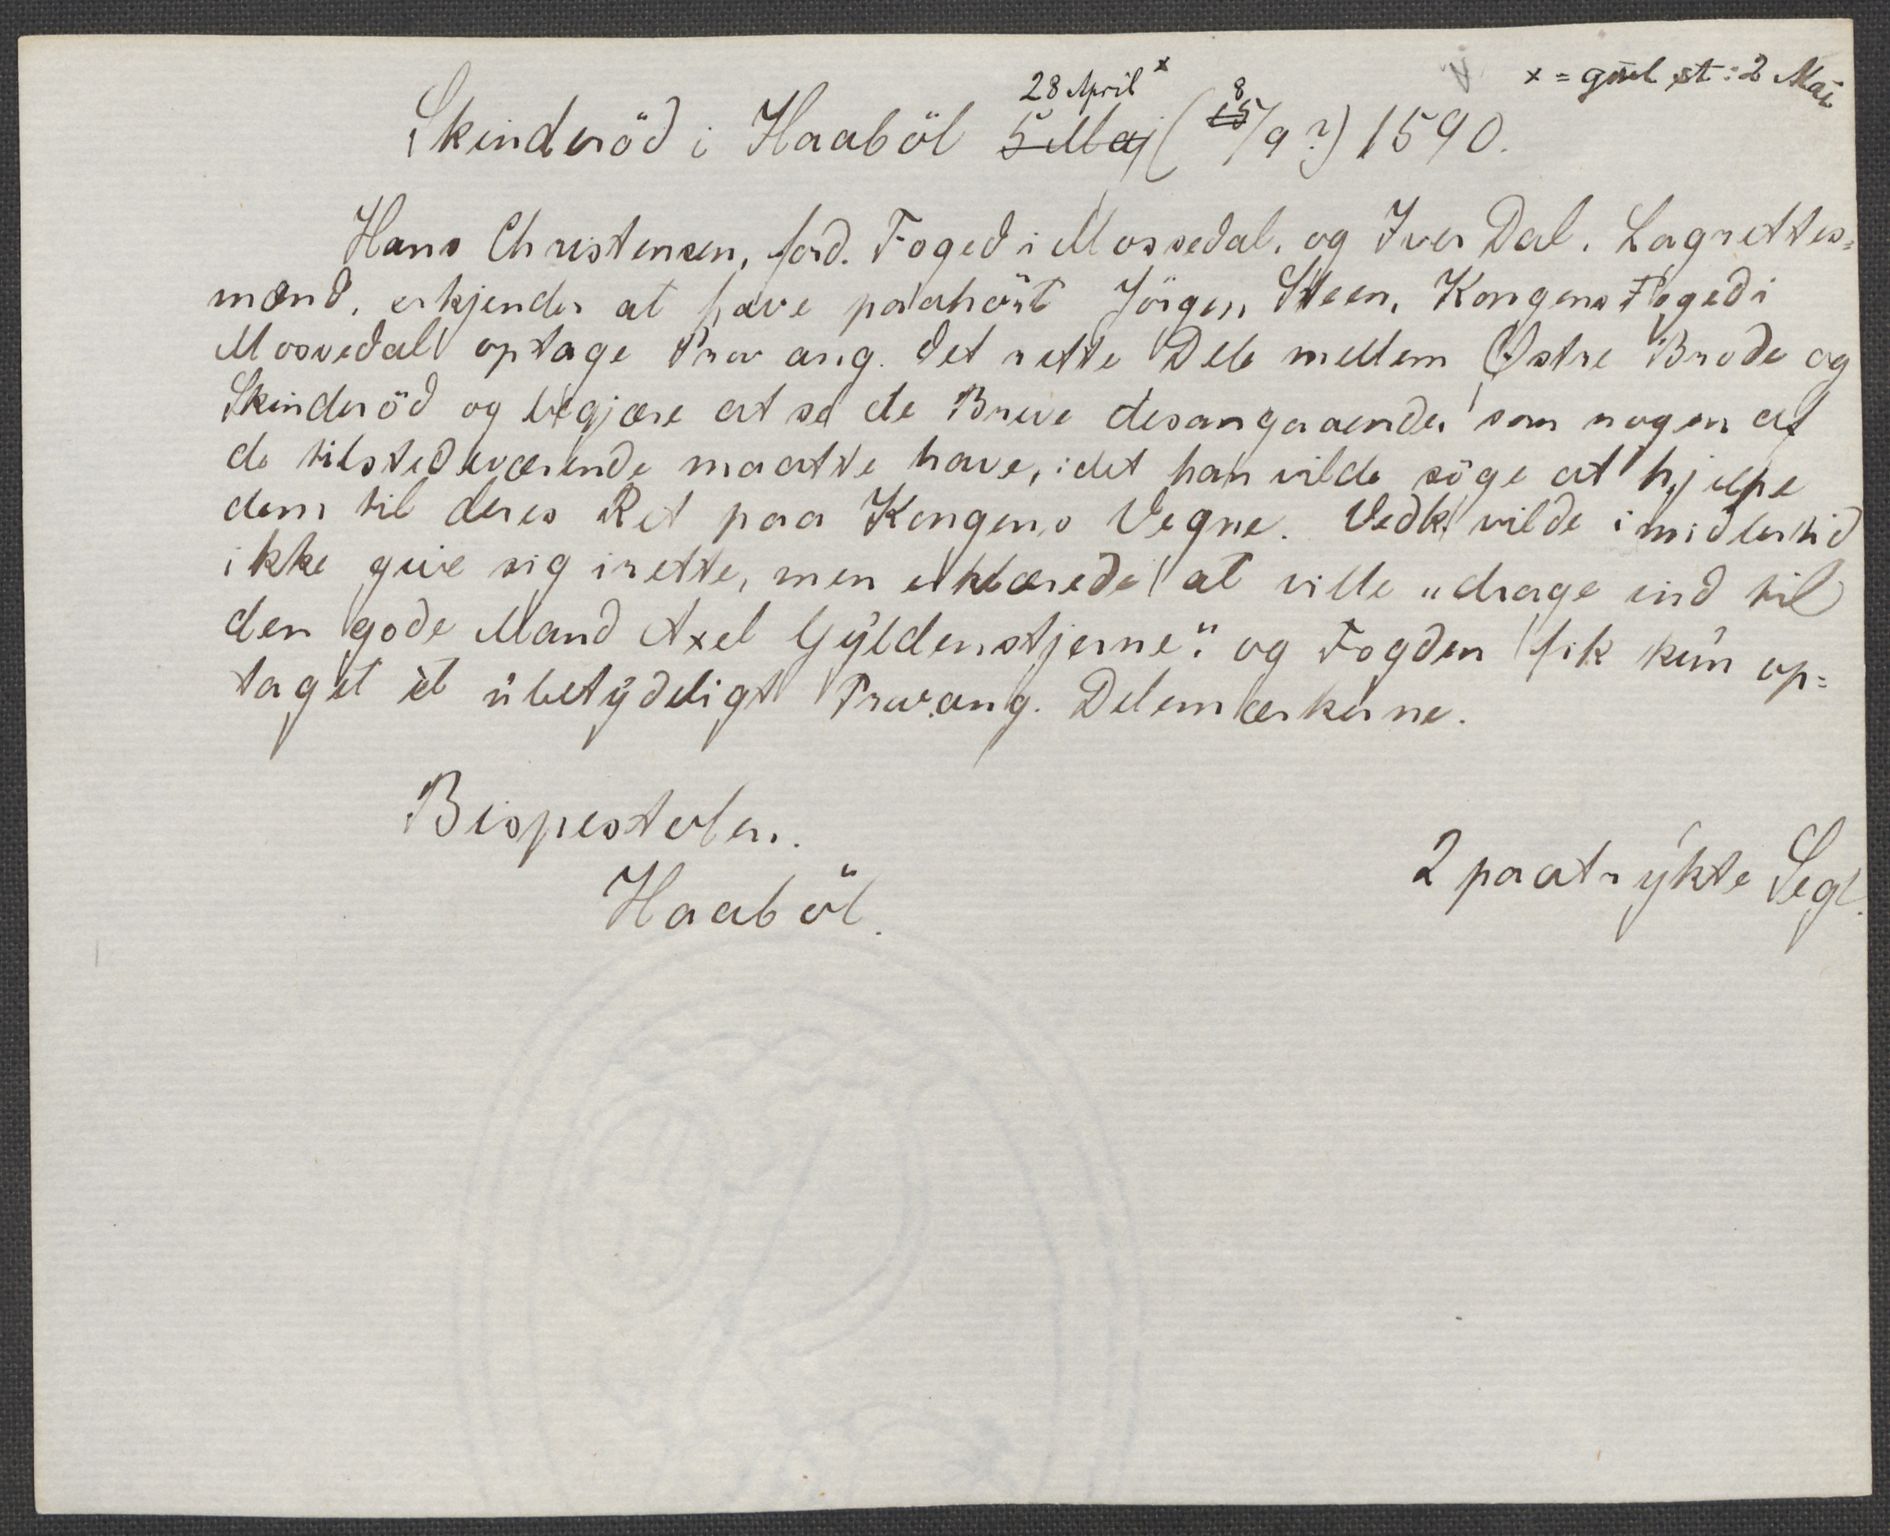 28 April x
x = gml st: 2 Mai
Skinderöd i Haaböl 5 Maj ( 15 8/9 ?) 1590.
Hans Christensen, ford. Foged i Mossedal, og Iver Dal, Lagrettes=
mænd, erkjender at have paahört Jörgen Steen, Kongens Foged i
Mossedal optage Prov ang. det rette Dele mellem Østre Brode og
Skinderöd og begjære at se de Breve desangaaende, som nogen af
de tilstedeværende maatte have, idet han vilde söge at hjelpe
dem til deres Ret paa Kongens Vegne. Vedk. vilde imidlertid
ikke give sig irette, men erklærede at ville „drage ind til
den gode Mand Axel Gyldenstjerne“ og Fogden fik kun op=
taget et ubetydeligt Prov ang. Delemærkerne.
Bispestolen.
Haaböl.
2 paatrykte Segl.